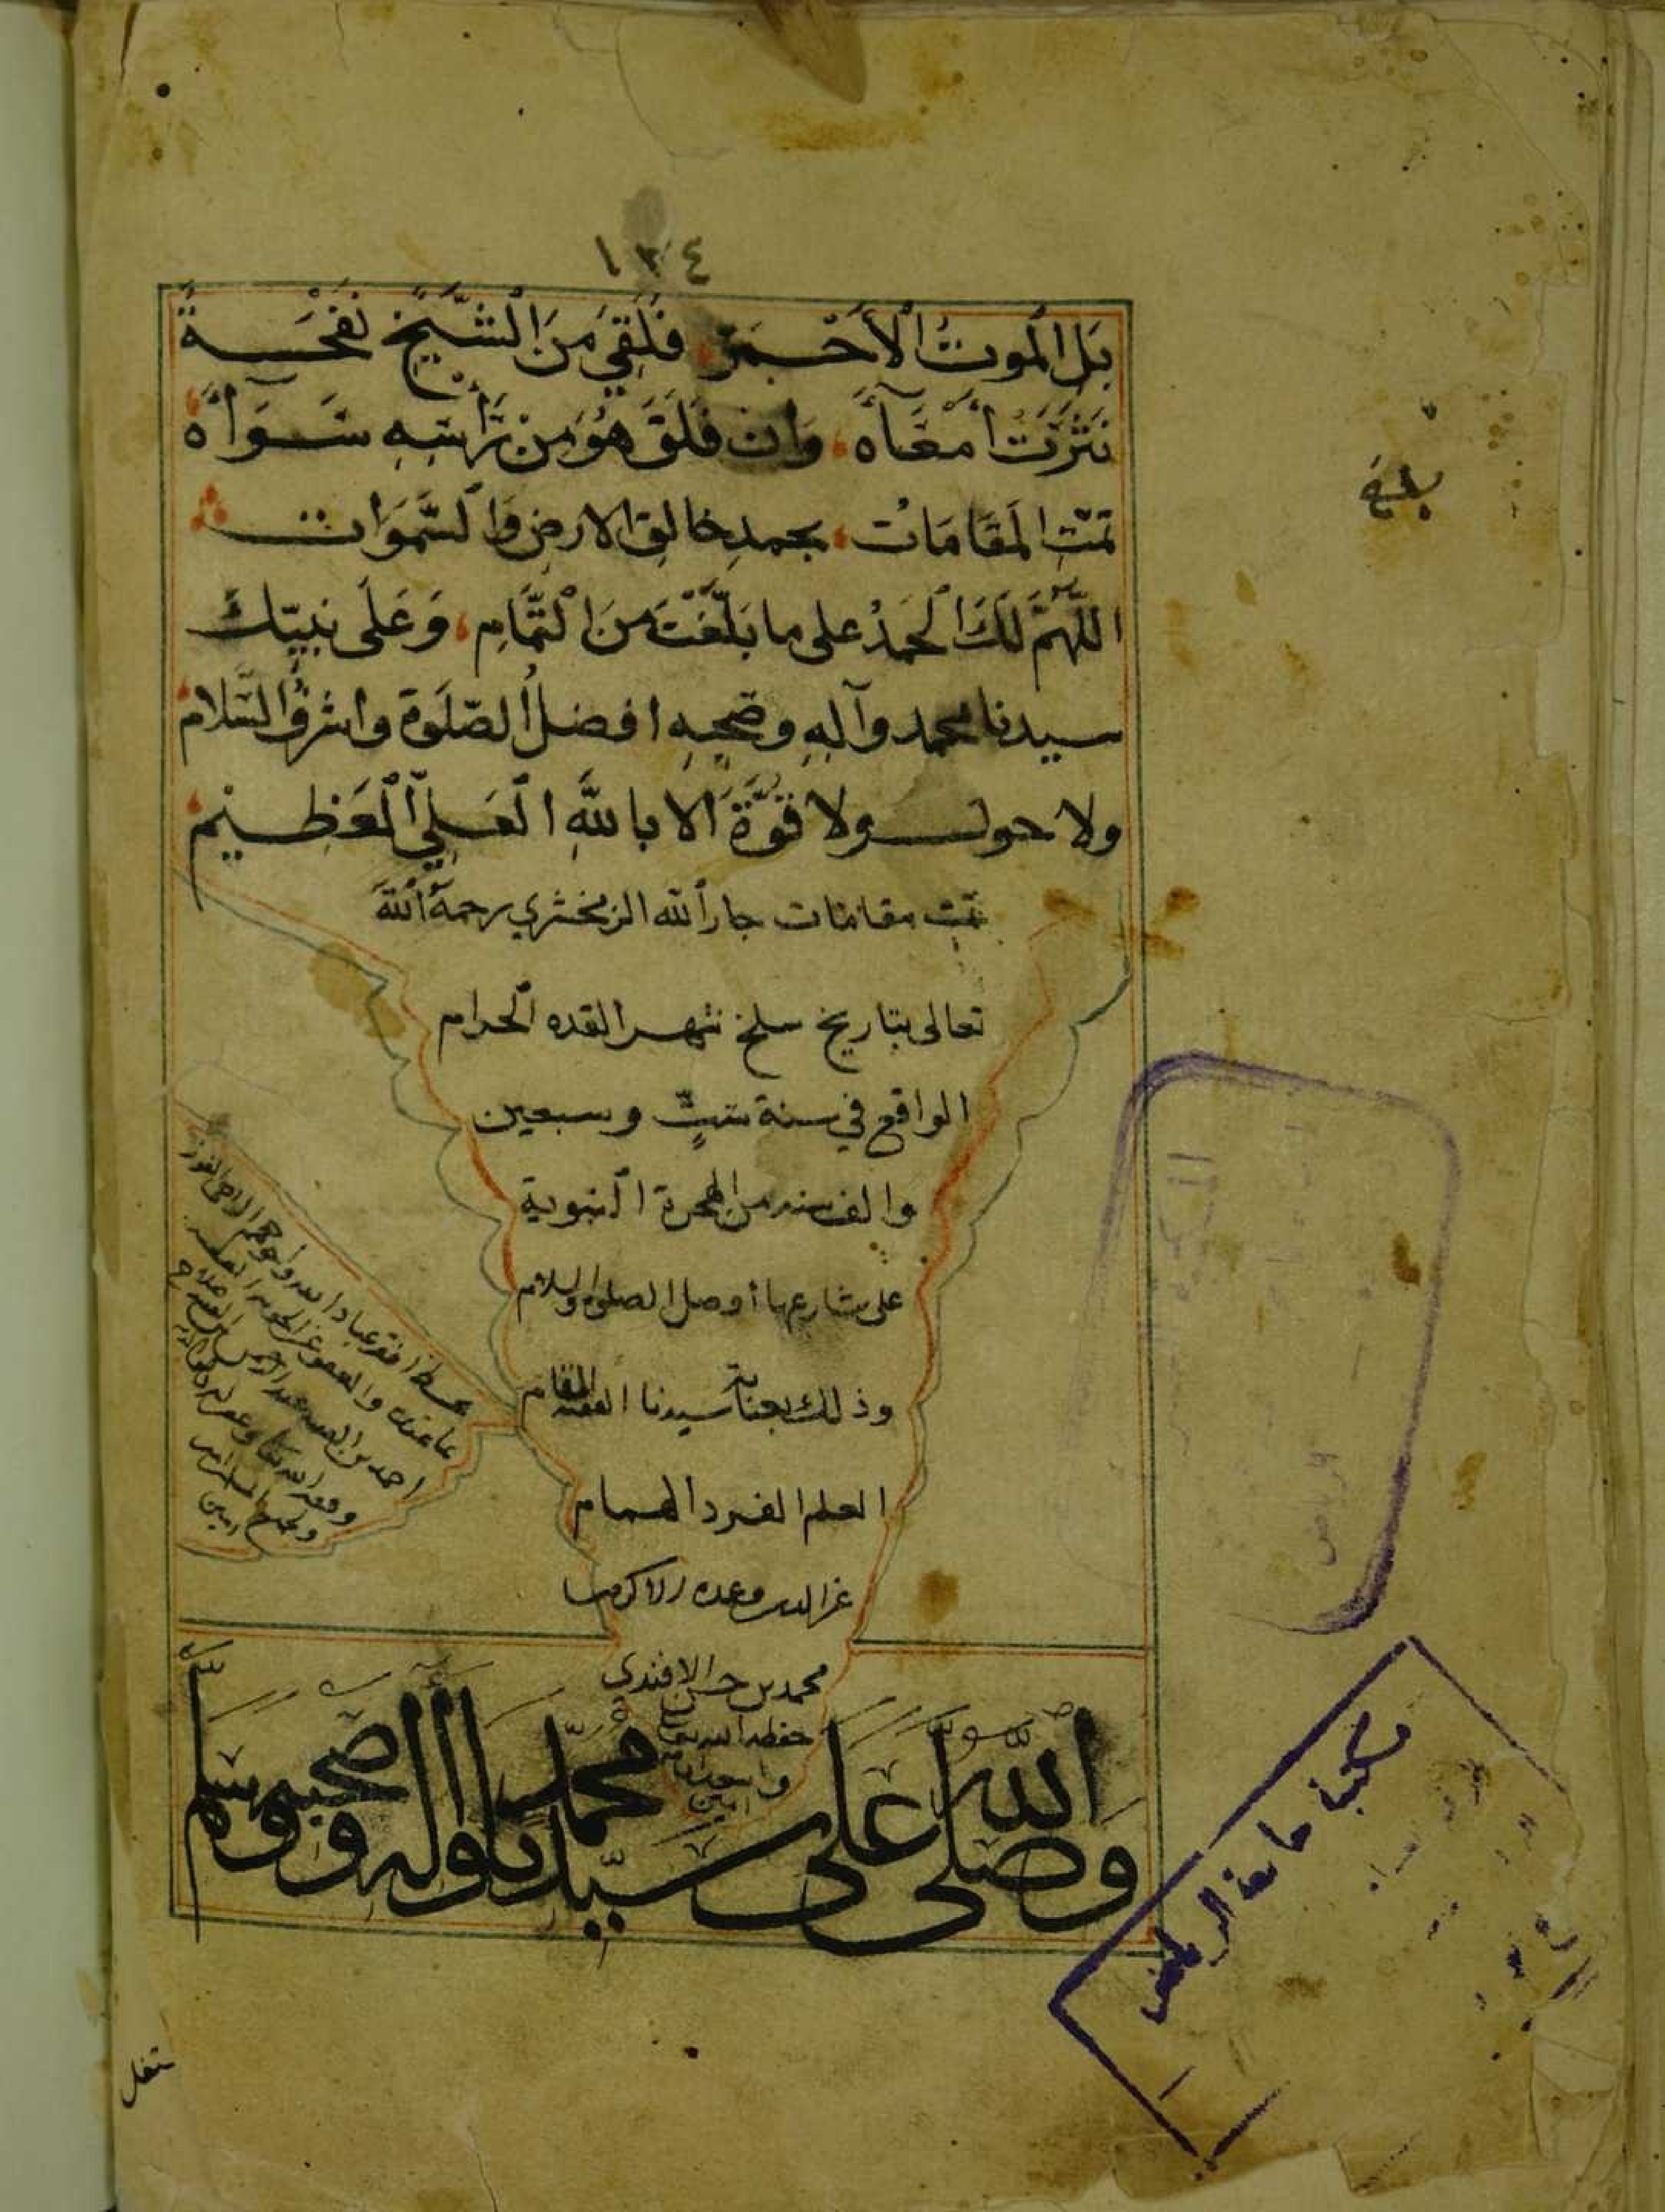 ١٣٤
بَلِ الْمَوتُ الْأَحْمَرُ، فَلَقِيَ مِنَ الشَّيْخِ نَفْحَةً
نَثَرَتْ أَمْعَآءَهُ، وَانْ فَلَقَ هُوَ مِنْ تُرْأَسِهِ شَوَاهُ
تمّت المَقَامَاتُ، بحمدِ خالقِ الارضِ وَالسَّمَوَات
اللَّهُمَّ لَكَ الْحَمْدُ على ما بَلَّغْتَ مِنَ التَّمَامِ، وَعَلَى نبيّك
سيدنا محمد وآلِهِ وصَحْبِهِ افضلُ الصّلَوة واشرفُ السَّلام
ولا حول ولا قُوَّةَ الا باللهِ العَلِيِّ الْعَظِيم
تمت مقامات جار الله الزمخشري رحمه الله
تعالى بتاريخ سلخ شهر القده الحرام
الواقع في سنة ستٍّ وسبعين
والف سنه من الهجرة النبوية
على شارعها افضل الصلوة والسلام
وذلك بعناية سيدنا الفقيه المقام
العلم الفرد الهمام
عز الدين وعمدة الاكرمين
محمد بن حسن الافندي
حفظه الله تعالى
امين
بخط افقر عباد الله واحوجهم الى
احمد بن
وفقه الله تعالى وغفر له ولوالديه
ولجميع المسلمين
امين
وصلى الله على سيدنا محمد واله وصحبه وسلم
بلغ
مكتبة جامعة الرياض